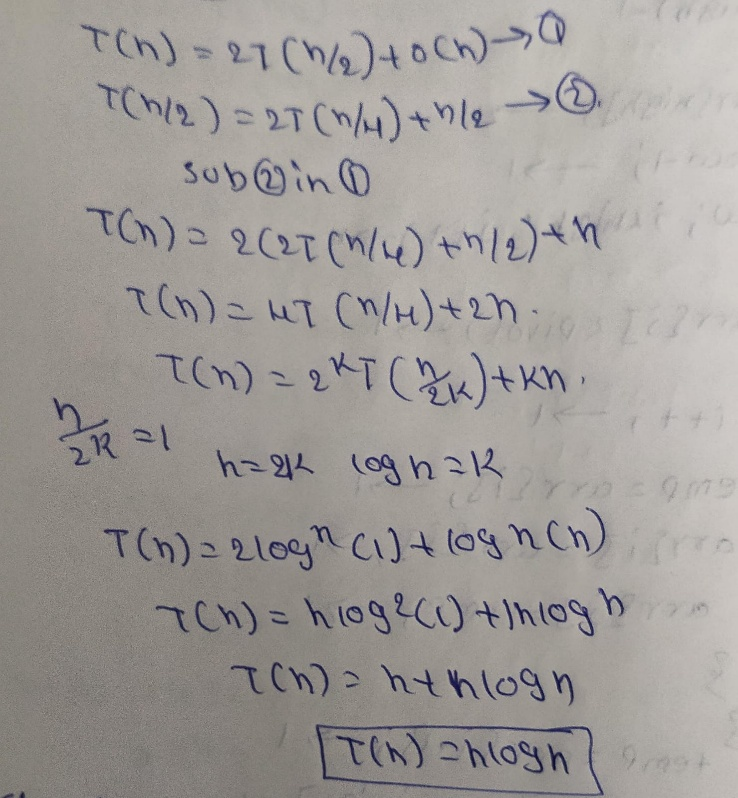 T(n) = 2T(n/2) + O(n) → ①
T(n/2) = 2T(n/4) + n/2 → ②.
sub ② in ①
T(n) = 2(2T(n/4) + n/2) + n
T(n) = 4T(n/4) + 2n.
T(n) = 2^K T(n/2K) + Kn.
n/2K = 1
n = 2K log n = K
T(n) = 2log^n (1) + log n (n)
T(n) = n log^2 (1) + n log n
T(n) = n + n log n
T(n) = n log n